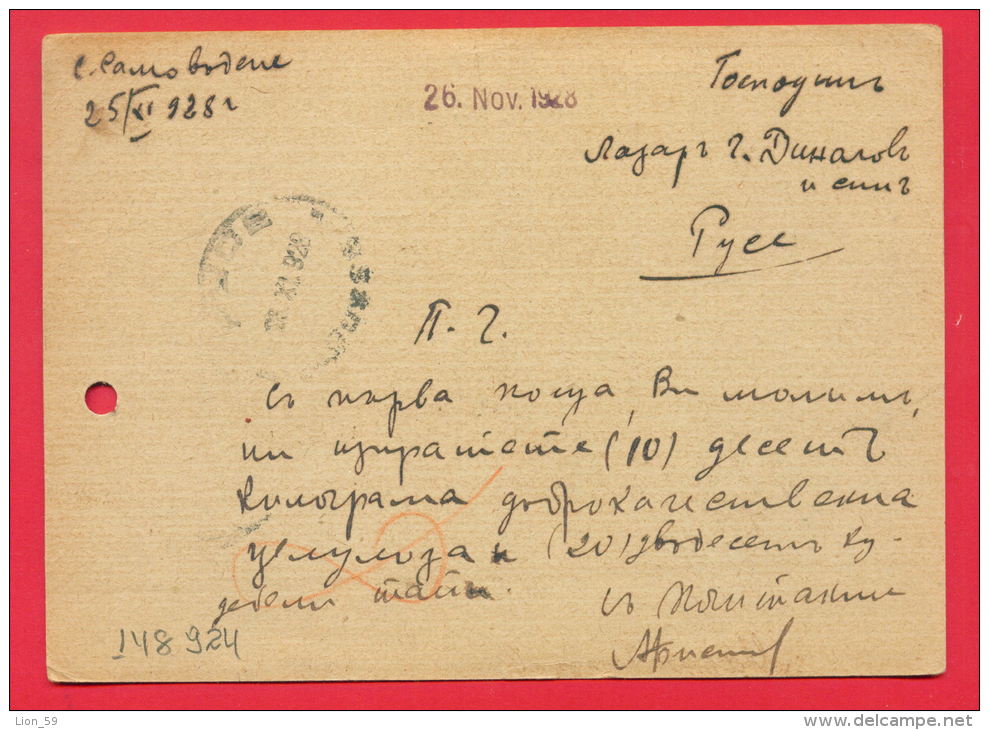 с. Самоводене
25/XI 928 г
26. Nov. 1928
Господинъ
Лазаръ Г. Диналовъ
и синъ
Русе
XI 928
П. Г.
Съ първа поща, Ви молимъ,
ни изпратете (10) десеть
килограма доброкачествена
целулоза и (20) двадесеть ку-
дебели
съ Почитание
148924
Lion_59
www.delcampe.net